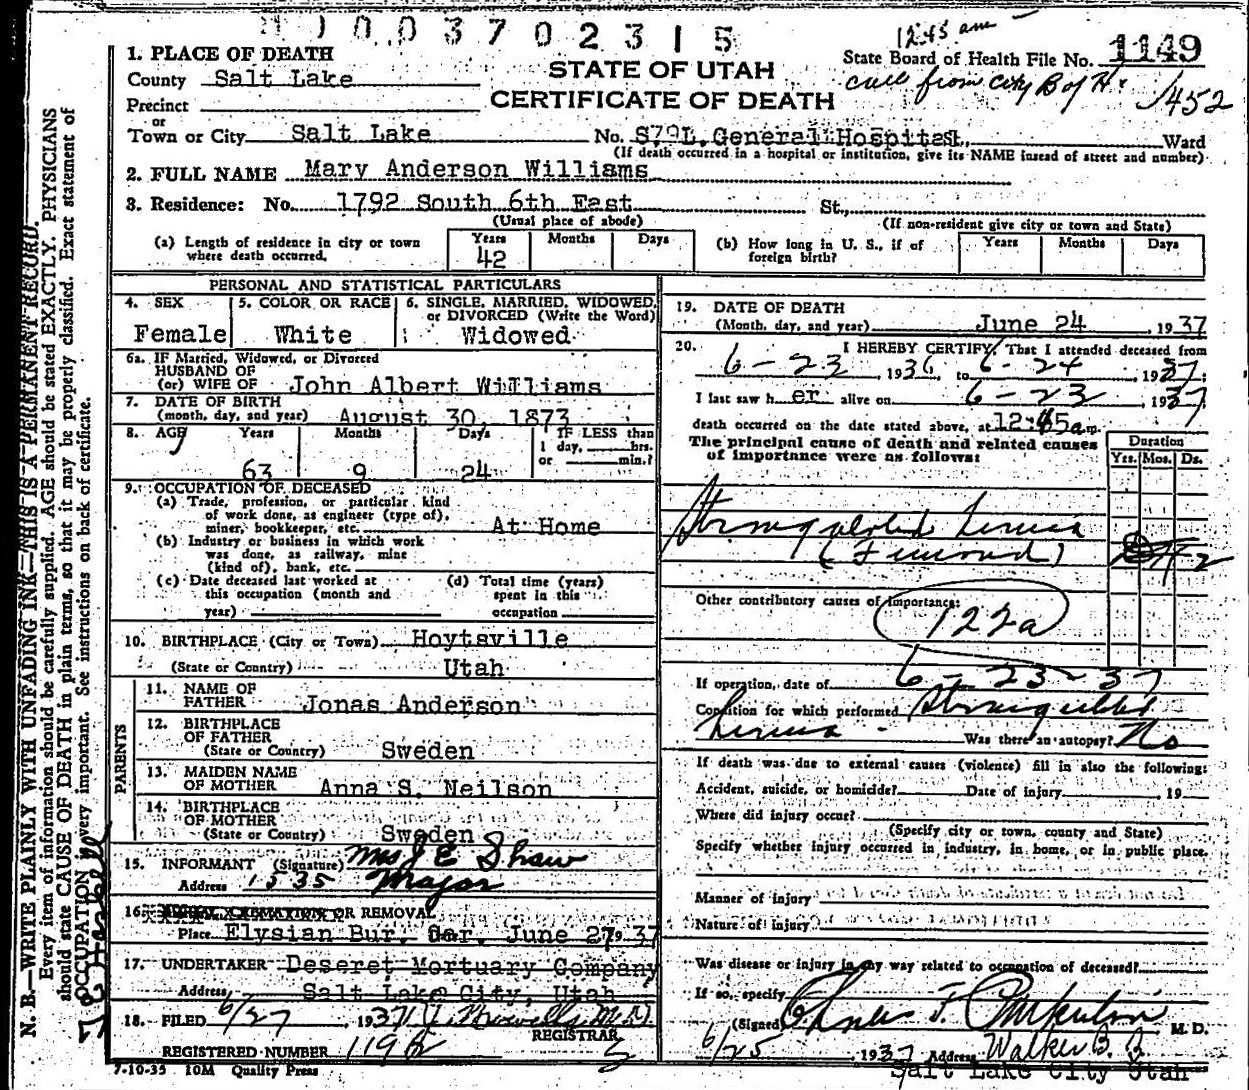 1003702315
12:45 am
1. PLACE OF DEATH
STATE OF UTAH
State Board of Health File No. 1149
County Salt Lake
call from City B of H.
CERTIFICATE OF DEATH
1452
Precinct
or
Town or City Salt Lake No. General Hospital, Ward
(If death occurred in a hospital or institution, give its NAME instead of street and number)
2. FULL NAME Mary Anderson Williams
3. Residence: No. 1792 South 6th East St.,
(Usual place of abode) (If non-resident give city or town and State)
(a) Length of residence in city or town where death occurred. Years 42 Months Days
(b) How long in U. S., if of foreign birth? Years Months Days
PERSONAL AND STATISTICAL PARTICULARS
4. SEX Female
5. COLOR OR RACE White
6. SINGLE, MARRIED, WIDOWED, or DIVORCED (Write the Word) Widowed
6a. IF Married, Widowed, or Divorced
HUSBAND OF
(or) WIFE OF John Albert Williams
7. DATE OF BIRTH
(month, day, and year) August 30, 1873
8. AGE Years 63 Months 9 Days 24 IF LESS than 1 day, hrs. or min.?
9. OCCUPATION OF DECEASED
(a) Trade, profession, or particular kind
of work done, as engineer (type of),
miner, bookkeeper, etc. At Home
(b) Industry or business in which work
was done, as railway, mine
(kind of), bank, etc.
(c) Date deceased last worked at
this occupation (month and
year)
(d) Total time (years)
spent in this
occupation
10. BIRTHPLACE (City or Town) Hoytsville
(State or Country) Utah
PARENTS
11. NAME OF
FATHER Jonas Anderson
12. BIRTHPLACE
OF FATHER
(State or Country) Sweden
13. MAIDEN NAME
OF MOTHER Anna S. Neilson
14. BIRTHPLACE
OF MOTHER
(State or Country) Sweden
15. INFORMANT (Signature) Mrs J E Shaw
Address 1535 Major
16. OR REMOVAL
Place Elysian Bur. Gar. June 27, 1937
17. UNDERTAKER Deseret Mortuary Company
Address Salt Lake City, Utah
18. FILED 6/27 1937 M.D.
REGISTRAR
REGISTERED NUMBER 1192
7-10-35 10M Quality Press
19. DATE OF DEATH
(Month, day, and year) June 24, 1937
20. I HEREBY CERTIFY, That I attended deceased from
6-23, 1936, to 6-24, 1937;
I last saw her alive on 6-23, 1937,
death occurred on the date stated above, at 12:45a m.
The principal cause of death and related causes
of importance were as follows:
Duration
Yrs. Mos. Ds.
Strangulated hernia
(Femoral)
Other contributory causes of importance:
122a
If operation, date of 6-23-37
Condition for which performed Strangulated
hernia Was there an autopsy? No
If death was due to external causes (violence) fill in also the following:
Accident, suicide, or homicide? Date of injury, 19
Where did injury occur?
(Specify city or town, county and State)
Specify whether injury occurred in industry, in home, or in public place.
Manner of injury
Nature of injury
Was disease or injury in any way related to occupation of deceased?
If so, specify
(Signed) Charles F. Pinkerton M. D.
6/25, 1937 Address Walker B. B
Salt Lake City Utah
N. B.—WRITE PLAINLY WITH UNFADING INK—THIS IS A PERMANENT RECORD.
Every item of information should be carefully supplied. AGE should be stated EXACTLY. PHYSICIANS
should state CAUSE OF DEATH in plain terms, so that it may be properly classified. Exact statement of
OCCUPATION is very important. See instructions on back of certificate.